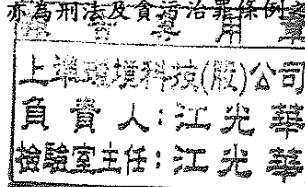 亦為刑法及貪污治罪條例
上準環境科技(股)公司
負責人:江光華
檢驗室主任:江光華